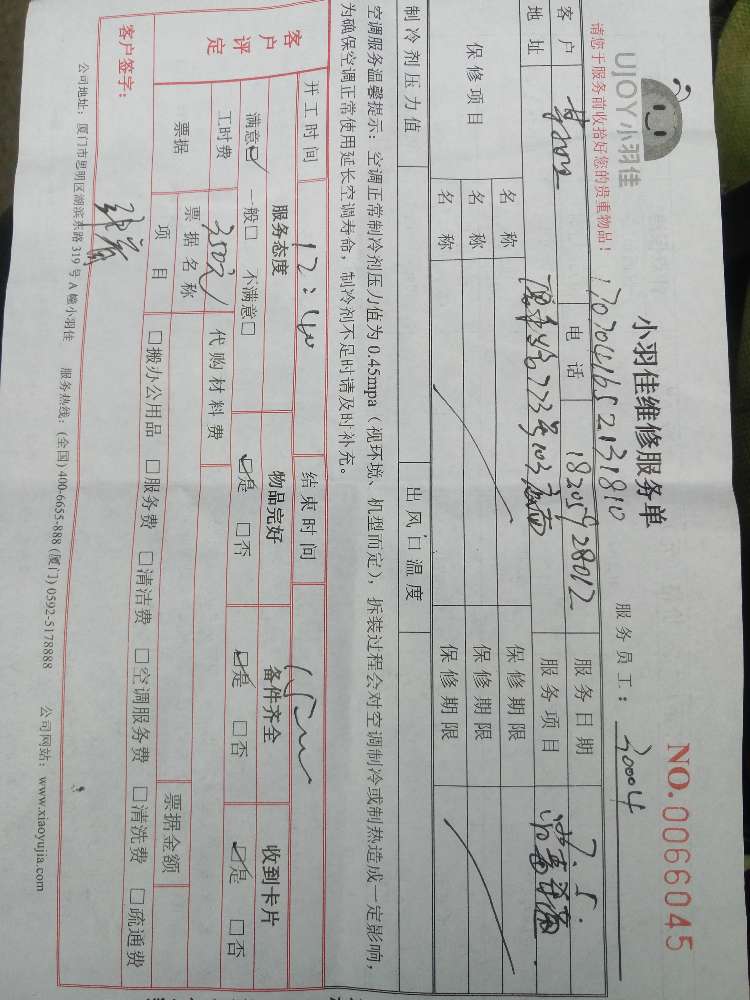 UJOY小羽佳
小羽佳维修服务单
NO.0066045
请您于服务前收拾好您的贵重物品!
服务员工: 30004
客户
电话 18205928012
服务日期 7.5.
地址
服务项目
保修项目
名称
保修期限
名称
保修期限
名称
保修期限
制冷剂压力值
出风口温度
空调服务温馨提示: 空调正常制冷剂压力值为0.45mpa(视环境、机型而定), 拆装过程会对空调制冷或制热造成一定影响,
为确保空调正常使用延长空调寿命, 制冷剂不足时请及时补充。
客户评定
开工时间 12:40
结束时间
服务态度
物品完好
备件齐全
收到卡片
满意☑ 一般□ 不满意□
☑是 □否
☑是 □否
☑是 □否
工时费 350元
代购材料费
票据
票据名称
票据金额
项目
□搬办公用品 □服务费 □清洁费 □空调服务费 □清洗费 □疏通费
客户签字:
公司地址: 厦门市思明区湖滨东路319号A幢小羽佳 服务热线: (全国) 400-6655-888 (厦门) 0592-5178888 公司网站: www.xiaoyujia.com